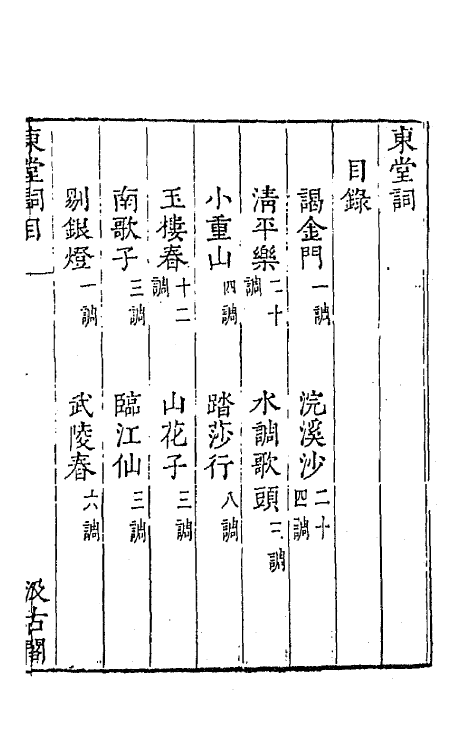 東堂詞
目錄
謁金門一調 浣溪沙二十四調
清平樂二十調 水調歌頭三調
小重山四調 踏莎行八調
玉樓春十二調 山花子三調
南歌子三調 臨江仙三調
剔銀燈一調 武陵春六調
東堂詞目 一 汲古閣